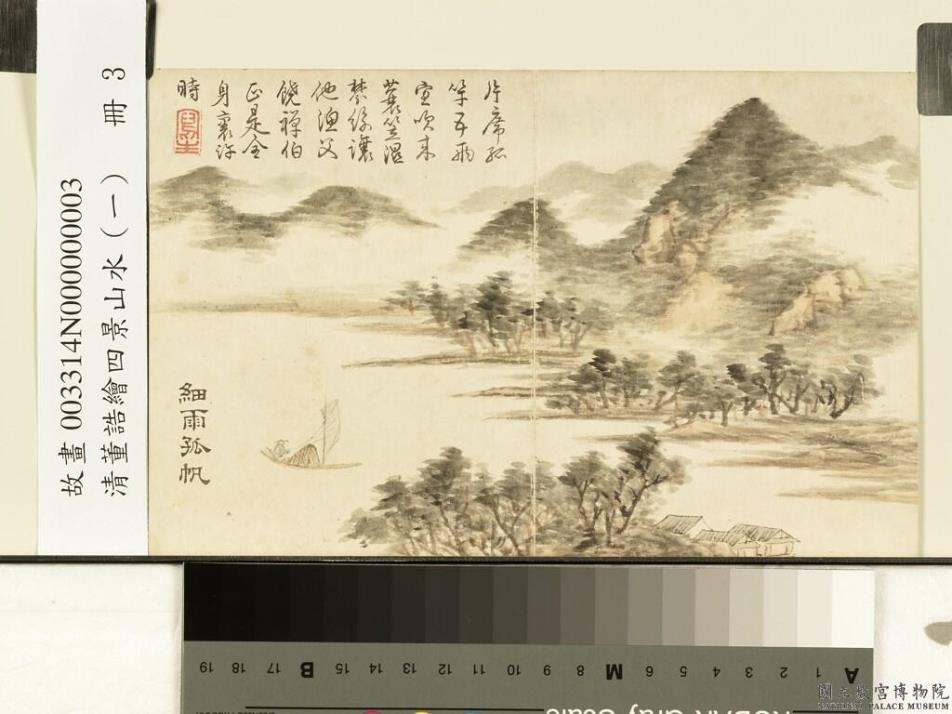 故畫 003314N000000003
清董誥繪四景山水(一) 冊 3
片席孤
竿雨
宜吹来
蓑笠濕
絲讓
他漁父
饒禪伯
正是全
身裏許
時
細雨孤帆
KODAK Gray Scale
A 1 2 3 4 5 6 M 8 9 10 11 12 13 14 15 B 17 18 19
國立故宮博物院
NATIONAL PALACE MUSEUM